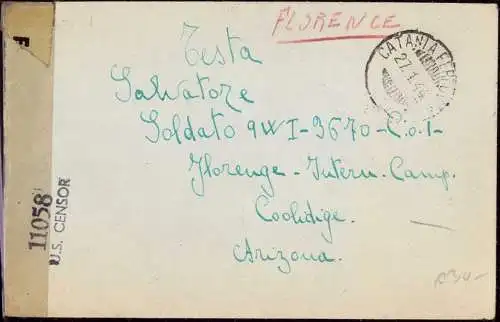 FLORENCE
CATANIA FERROVIA
27.1.45
Testa
Salvatore
Soldato 9WI-3670-Co.1-
Florenge-Intern-Camp.
Coolidige.
Arizona.
11058
U.S. CENSOR
F